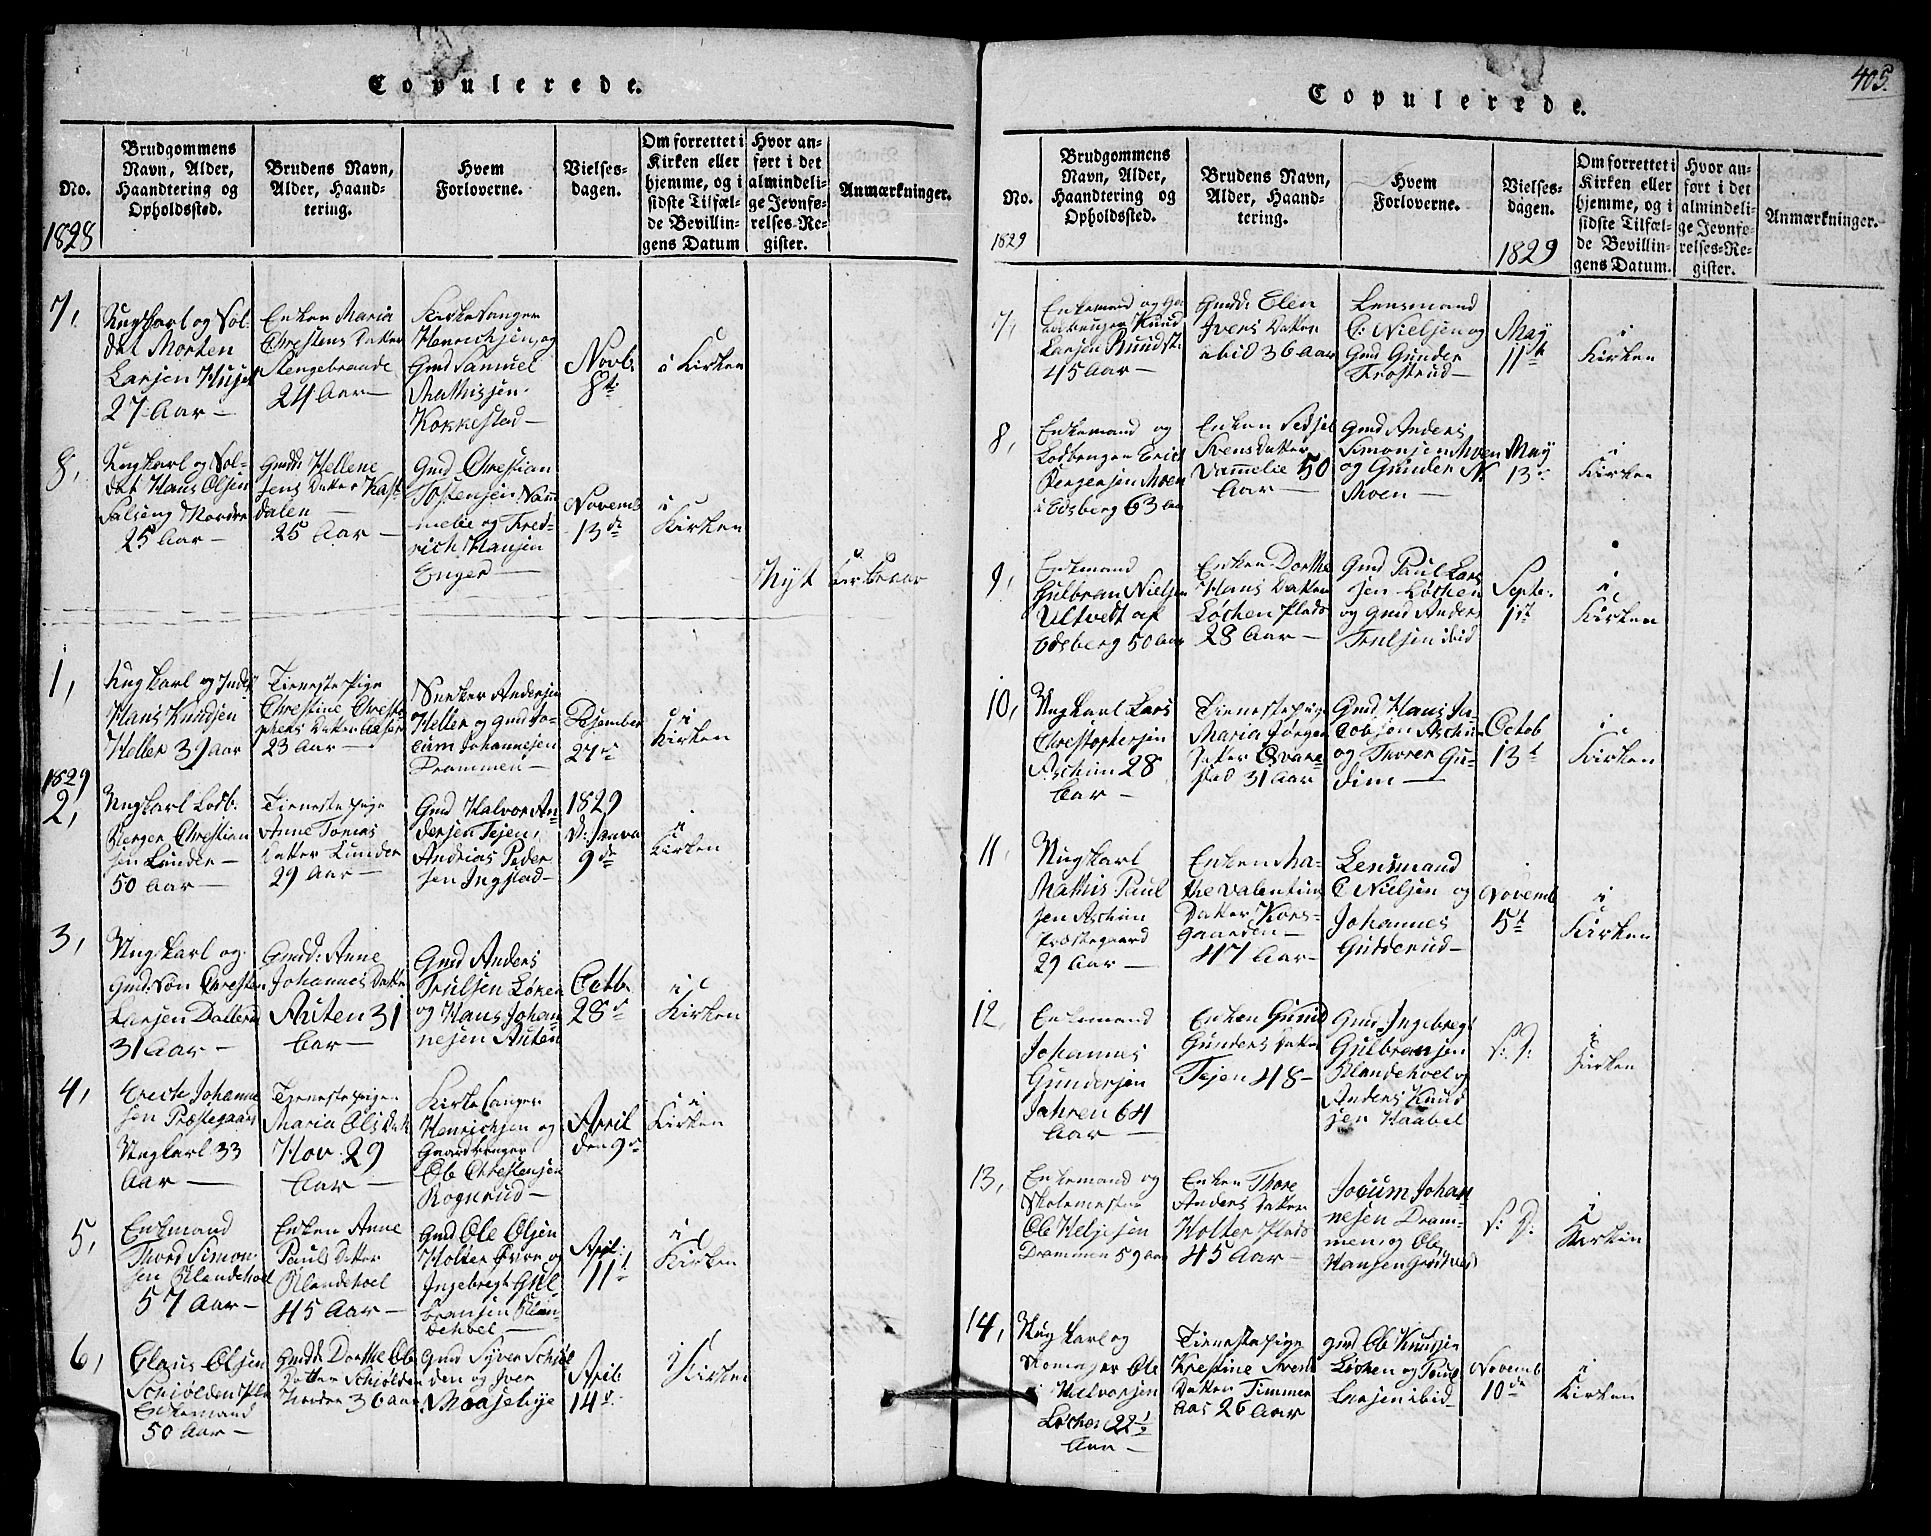 Copulerede.
No.
1828
Brudgommens
Navn, Alder,
Haandtering og
Opholdssted.
Brudens Navn,
Alder, Haand-
tering.
Hvem
Forloverne.
Vielses-
dagen.
Om forrettet i
Kirken eller
hjemme, og i
sidste Tilfæl-
de Bevillin-
gens Datum
Hvor an-
ført i det
almindeli-
ge Jevnfø-
relses-Re-
gister.
Anmærkninger.
7,
Ungkarl og Sol-
dat Morten
Larsen
27 Aar —
Enken Maria
Christens Datter
Stengebraande
24 Aar —
Kirkesanger
Henrichsen, og
Gmd Samuel
Mathisjen
Kokkestad —
Novb.
8t
i Kirken
8,
Ungkarl og Sol-
dat Hans Olsen
Nordre
25 Aar —
Gmdd: Hellene
Jens Datter Kast-
dalen —
25 Aar —
Gmd Christian
Tostensen Vam
melie og Fred-
rich Hansen
Enger —
Novemb
13de
i
Kirken
Nyt Kirkeaar
1,
Ungkarl og
Hans Knudsen
Heller 39 aar
Tieneste Pige
Christine Christo
phers Datter
23 Aar —
Snecker Andersen
Heller og Gmd Jo-
cum Johannesen
Drammen —
Desember
27de
i
Kirken
1829
2,
Ungkarl Lodb.
Berger Christian
sen Lunder —
50 Aar —
Tieneste pige
Anne Tomas
Datter Lunder
29 Aar —
Gmd Halvor An-
dersen Tejen,
Andreas Peder
sen Ingstad —
1829
D: Janva
9de
i
Kirken
3,
Ungkarl og
Gmd: Søn Christen
Larsen Dallerud
31 Aar —
Gmdd: Anne
Johannes Datter
Auten 31
Aar —
Gmd Anders
Trulsen Løken
og Hans Johan
nesen Auten
Octb.
28de
i
Kirken
4,
Johanne
sen Præstegaar
Ungkarl 33
Aar —
Tjenestepigen
Maria Ols Datt
Hov. 29
Aar —
Kirkesanger
Henrichsen og
Gaardbruger
Ole Christensen
Rognerud —
April
den 9de
i
Kirken
5,
Enkemand
Thord Simon-
sen Ølandehoel
57 Aar —
Enken Anne
Pauls Datter
Ølandehoel
45 Aar —
Gmd Ole Olsen
Holter Øvre og
Ingebregt Gul
bransen Ølan-
dehoel —
April
11t
i
Kirken
6,
Claus Olsen
Schiølden Pla
Enkemand
50 Aar —
Gmdd: Dorthe Ole
Datter Schiølden
Nordre 36 aar
Gmd Syver Schiøl
den og Iver
Moosehije
April
14de
i Kirken
405.
Copulerede.
No.
1829
Brudgommens
Navn, Alder,
Haandtering og
Opholdssted.
Brudens Navn,
Alder, Haand-
tering.
Hvem
Forloverne.
Vielses-
dagen.
1829
Om forrettet i
Kirken eller
hjemme, og i
sidste Tilfæl-
de Bevillin-
gens Datum.
Hvor an-
ført i det
almindeli-
ge Jevnfø-
relses-Re-
gister.
Anmærkninger.
7,
Enkemand og Ga
ardbruger Knud
Larsen Rundst:
45 Aar —
Gmdd: Elen
Ivers Datter
ibid 36 aar
Lensmand
C: Nielsen og
Gmd Gunder
Frostrud —
May
11te
i
Kirken
8,
Enkemand og
Lodbruger Erick
Børgersen Moen
i Edsberg 63 aar
Enken Sidsel
Svens Datter
Vamelie 50
Aar —
Gmd Anders
Simonsen Moen
og Gunder N.
Moen —
May
13de
i
Kirken
9,
Enkemand
Gulbran Nielsen
Ultvedt af
Edsberg 50 Aar
Enken Dorthe
Hans Datter
Løchen Plads
28 Aar —
Gmd Paul Lars
sen Løchen
og Gmd Anders
Trulsen ibid
Septr.
1st
i
Kirken
10,
Ungkarl Lars
Christophersen
Aschim 28
Aar —
Tienestepige
Maria Jørgen
Datter Qvare-
stad 31 Aar
Gmd Hans Ja-
cobsen Aschim
og Thorer Gu-
dim —
Octob
13t
i
Kirken
11,
Ungkarl
Mathis Paul
sen Aschim
Præstegaard
29 Aar —
Enken Ma-
the Valentins
Datter Kors-
gaarden —
47 Aar —
Lensmand
C Nielsen og
Johannes
Gudderud —
Novemb
5t
i
Kirken
12,
Enkemand
Johannes
Gundersen
Jahren 64
Aar —
Enken Gunild
Gunders Datter
Tejen 48 —
Gmd Ingebregt
Gulbransen
Ølandehoel og
Anders Knud
sen Haabel
S: D:
i
Kirken
13,
Enkemand og
Skolemester
Ole Helgesen
Drammen 59 aar
Enken Thore
Anders Datter
Holter Plads
45 Aar —
Jocum Johan
nesen Dram-
men og Ole
Hansen
S: D:
i
Kirken
14,
Ungkarl og
Skomager Ole
Halvorsen
Løchen 22 1/2
Aar —
Tieneste pige
Kristine Svens
Datter Timmer
aas 26 Aar
gmd Ole Knudsen
Løchen og Paul
Larsen ibid
Novemb
10de
i
Kirken